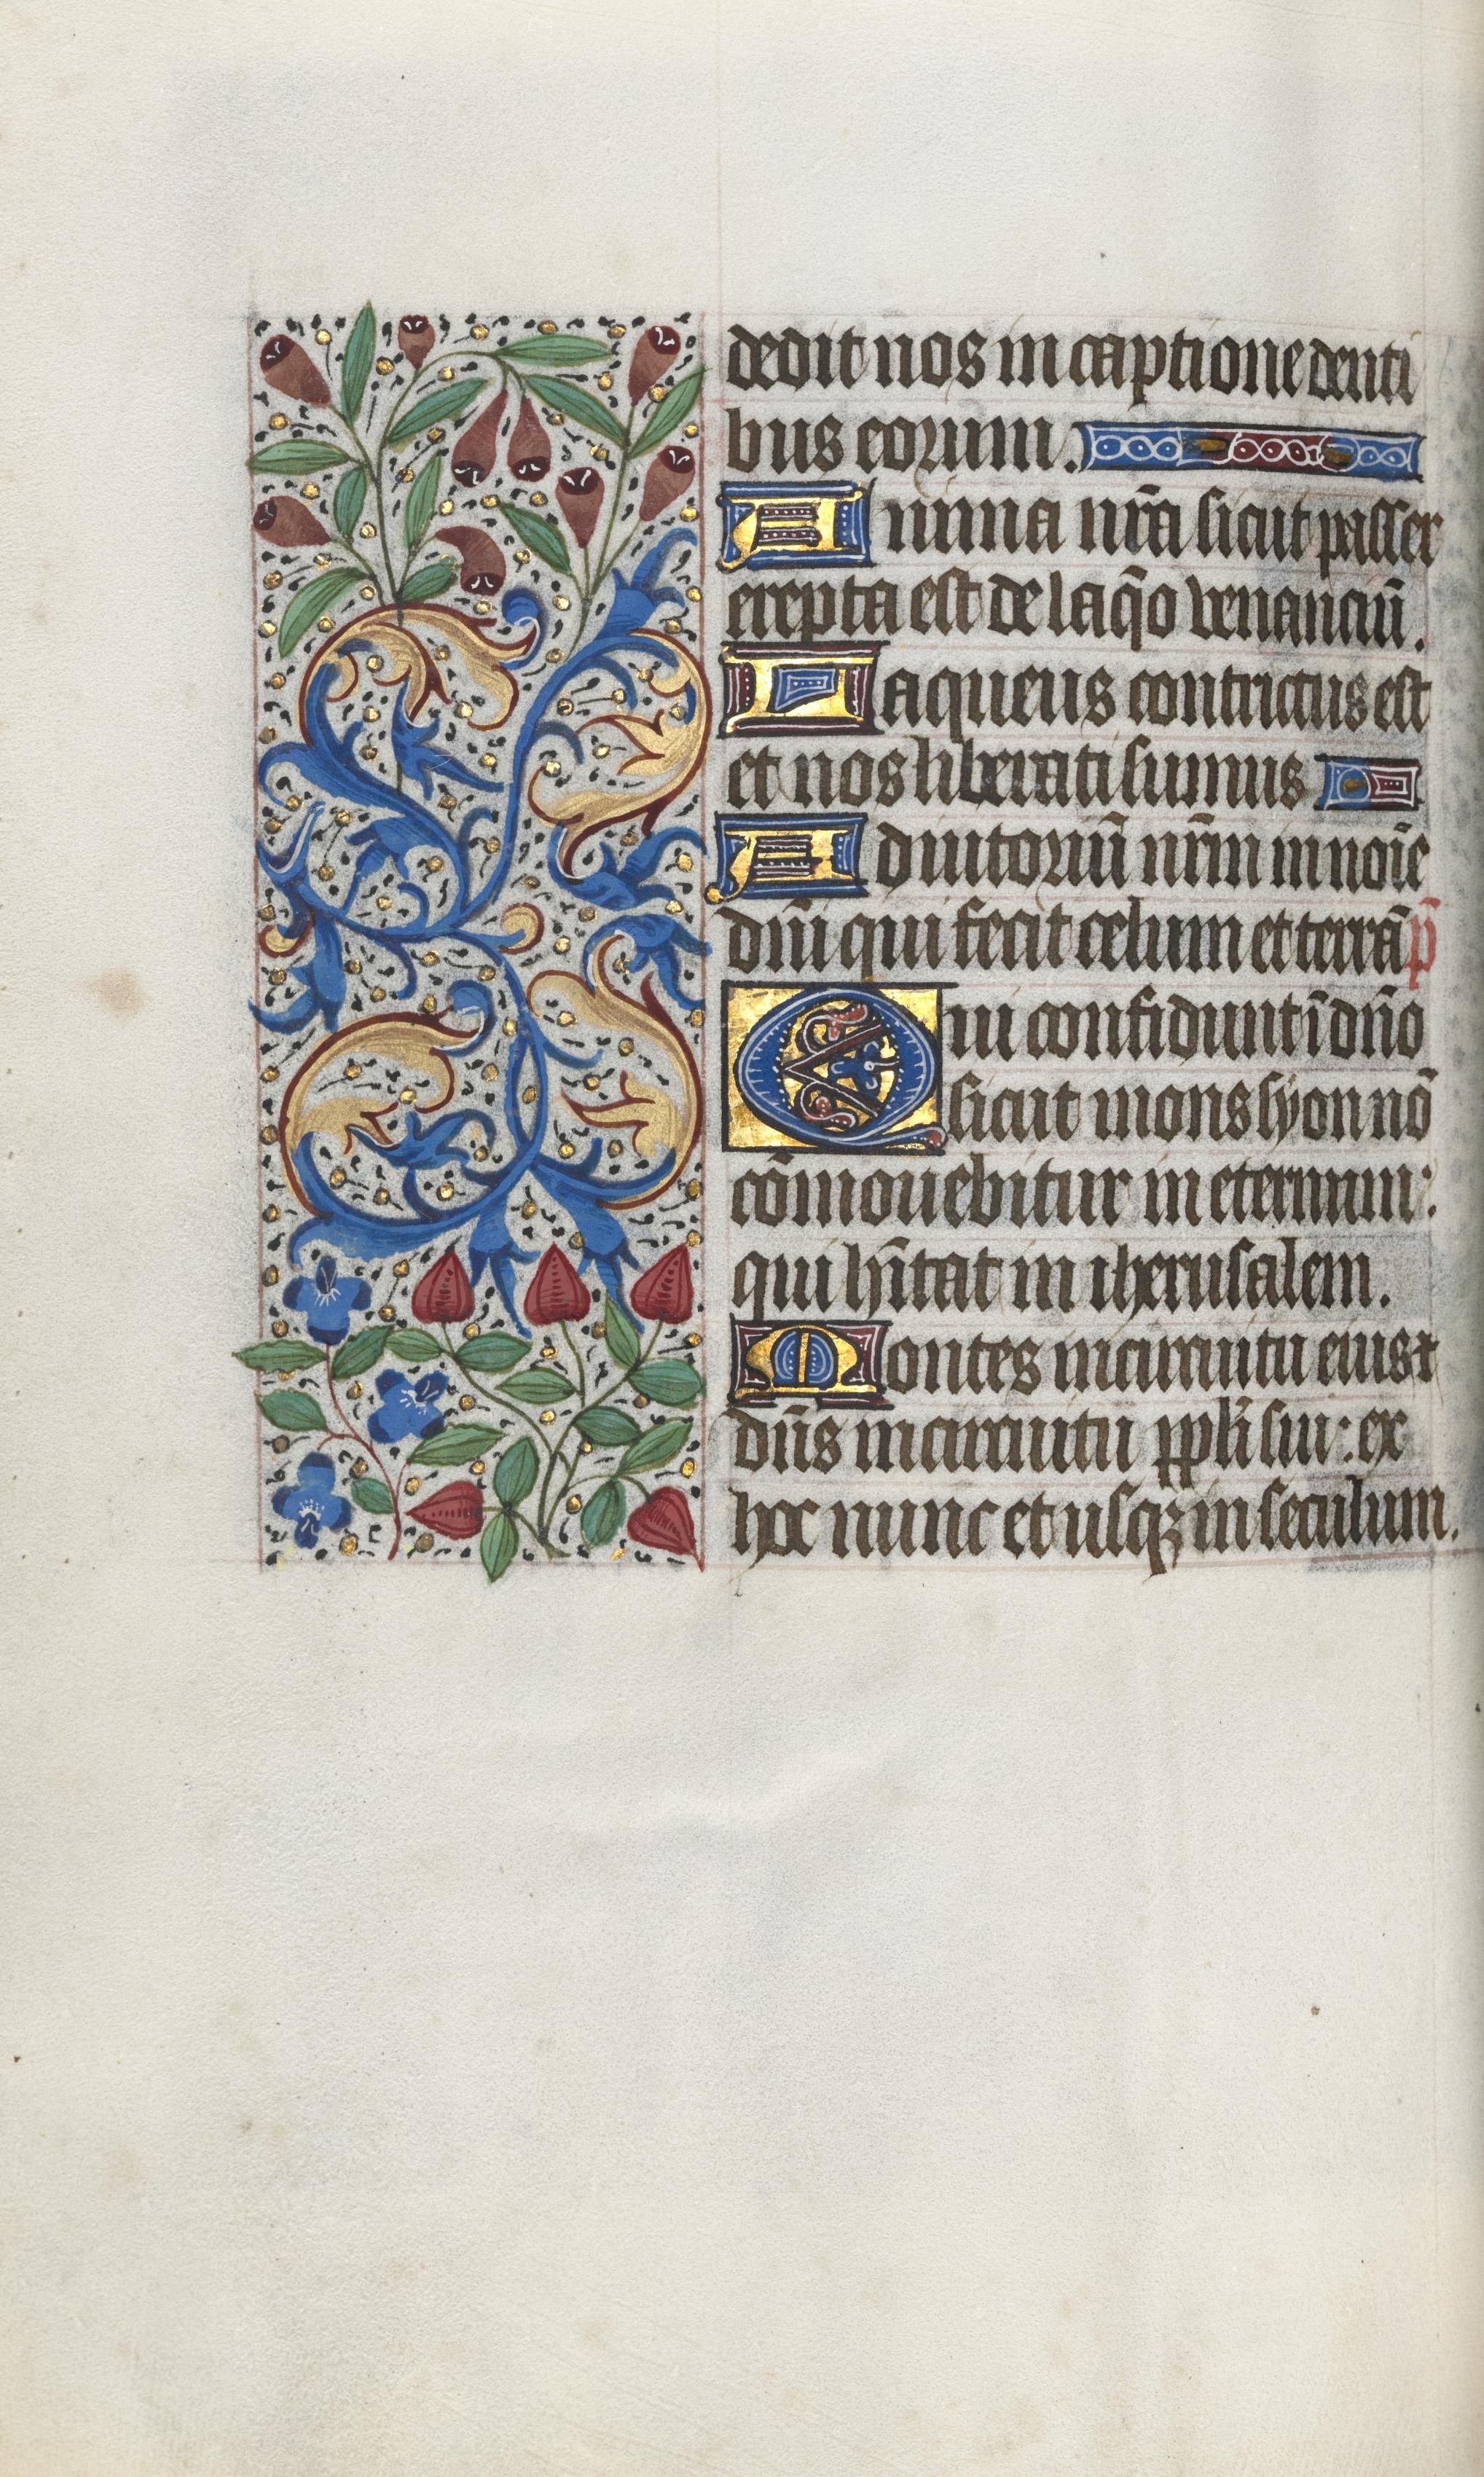 dedit nos in captione denti
bus eorum.
Anima nr̄a sicut passer
erepta est de laq̄o venanciū.
Laqueus contrictus est
et nos liberati sumus
Adiutoriū nr̄m in noīe
dn̄i qui fecit celum et terrā p̄
Qui confidunt ī dn̄o
sicut mons syon nō
cōmouebitur in eternum:
qui hītat in iherusalem.
Montes in circuitu eius ⁊
dn̄s in circuitu ppl̄i sui: ex
hoc nunc et usqꝫ in seculum.